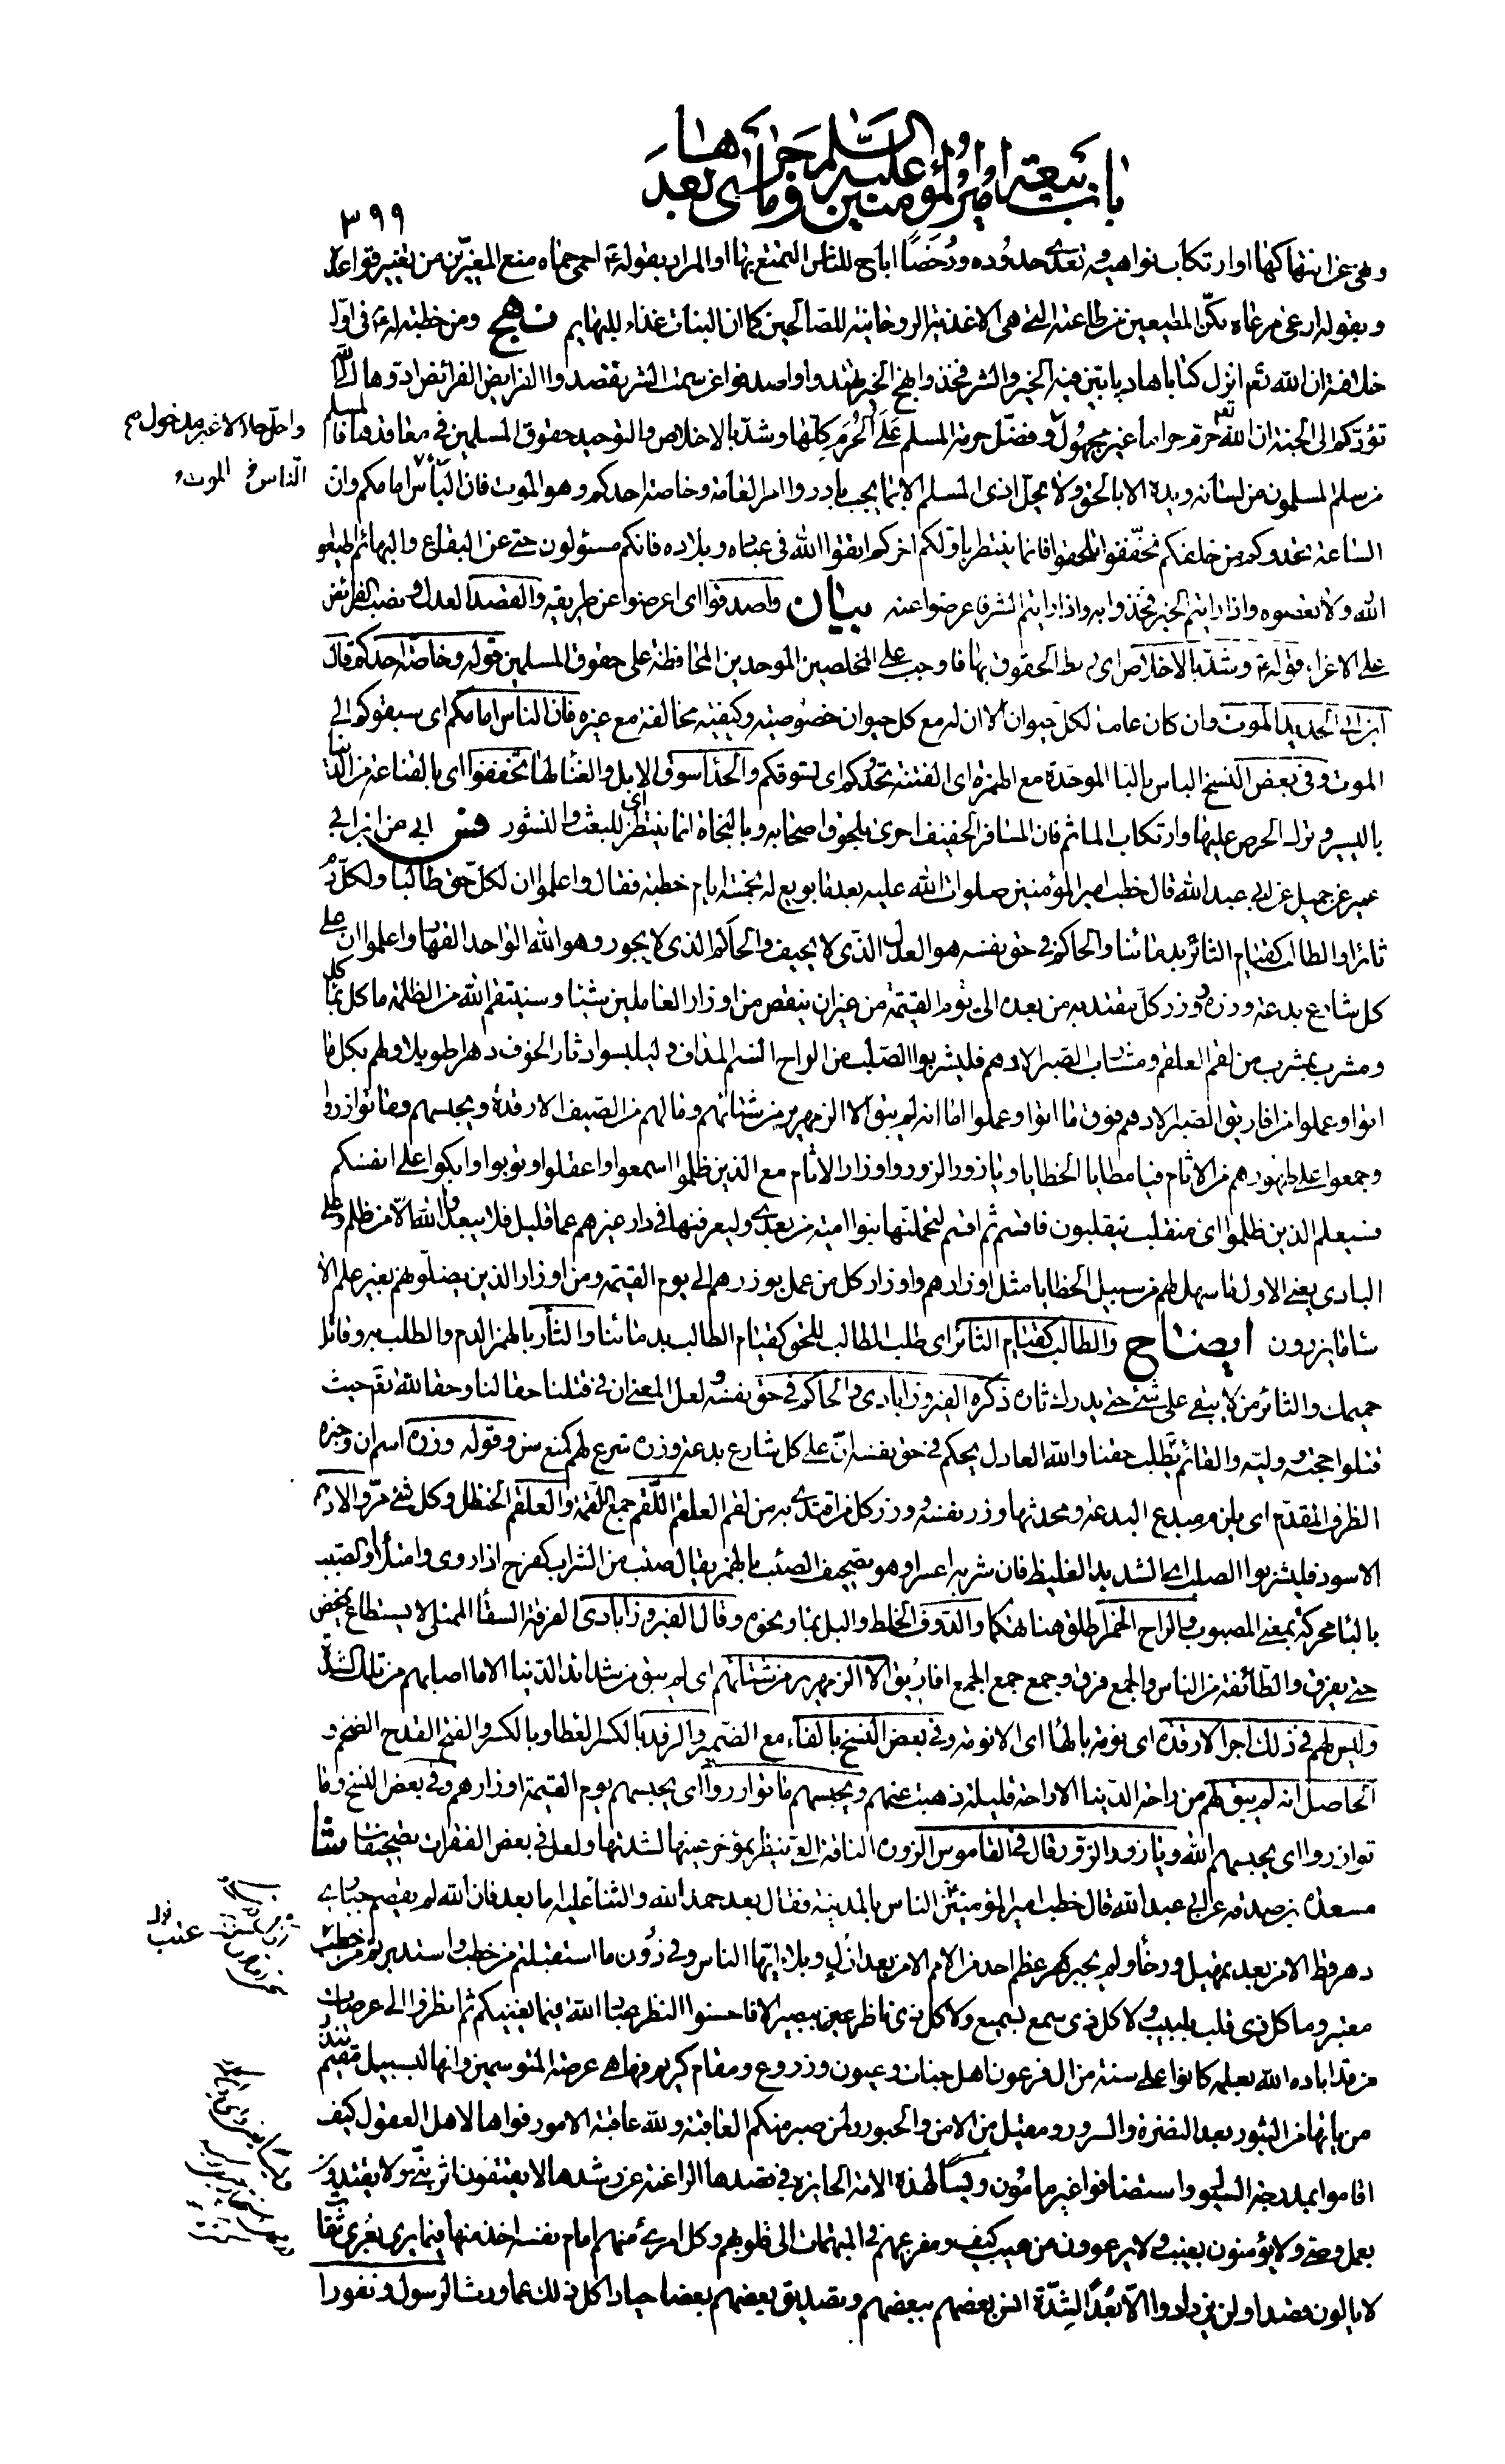 باب بيعة امير المؤمنين عليه السلم وما جرى بعدها
٣٩٩
وهى عن انتهاكها او ارتكاب نواهيه وتعدى حدوده ورخصا اباح للناس التمتع بها او المراد بقوله احمى حماه منع المغيرين من تغيير قواعد
وبقوله ارعى مرعاه تمكن المطيعين من طاعته التى هى الاغذية الروحانية للصالحين كما ان النبات غذاء للبهايم نهج ومن خطبة له فى اول
خلافته ان الله تع انزل كتابا هاديا بين فيه الخير والشر فخذوا نهج الخير تهتدوا واصدفوا عن سمت الشر تقصدوا الفرايض الفرائض ادوها الى الله
تؤدكم الى الجنة ان الله تع حرم حراما غير مجهول وفضل حرمة المسلم على الحرم كلها وشد بالاخلاص والتوحيد حقوق المسلمين فى معاقدها فالمسلم
واحل حلالا غير مدخول صح
من سلم المسلمون من لسانه ويده الا بالحق ولا يحل اذى المسلم الا بما يجب بادروا امر العامة وخاصة احدكم وهو الموت فان البأس امامكم وان
الناس
الساعة تحدوكم من خلفكم تخففوا تلحقوا فانما ينتظر باولكم اخركم اتقوا الله فى عباده وبلاده فانكم مسئولون حتى عن البقاع والبهائم اطيعوا
الله ولا تعصوه واذا رايتم الخير فخذوا به واذا رايتم الشر فاعرضوا عنه بيان واصدفوا اى اعرضوا عن طريقه والقصد العدل ونصب الفرائض
على الاغراء قوله وشد بالاخلاص اى ربط الحقوق بها فاوجب على المخلصين الموحدين المحافظة على حقوق المسلمين قوله وخاصة احدكم قال
ابن ابى الحديد الموت وان كان عاما لكل حيوان الا ان له مع كل حيوان خصوصية وكيفية مخالفة مع غيره فان الناس امامكم اى سبقوكم الى
الموت وفى بعض النسخ الباس بالبا الموحدة مع الهمزة اى الفتنة تحدوكم اى تسوقكم والحدا سوق الابل والغنا لها تخففوا اى بالقناعة من الدنيا
باليسير وترك الحرص عليها وارتكاب الماثم فان المسافر الخفيف احرى بلحوق اصحابه وبالنجاة انما ينتظر اى للبعث والنشور فس ابى عن ابن ابى
عمير عن جميل عن ابى عبد الله قال خطب امير المؤمنين صلوات الله عليه بعد ما بويع له بخمسة ايام خطبة فقال واعلموا ان لكل حق طالبا ولكل دم
ثائرا والطالب كقيام الثائر بدمائنا والحاكم فى حق نفسه هو العدل الذى لا يحيف والحاكم الذى لا يجور وهو الله الواحد القهار واعلموا ان على
كل شارع بدعة وزره ووزر كل مقتد به من بعده الى يوم القيمة من غير ان ينقص من اوزار العاملين شيئا وسينتقم الله من الظلمة ماكل بماكل
ومشرب بمشرب من لقم العلقم ومشارب الصبر الادهم فليشربوا الصلب من الراح السم المذاف وليلبسوا دثار الخوف دهرا طويلا ولهم بكل ما
اتوا وعملوا من افاريق الصبر الادهم فوق ما اتوا وعملوا اما انه لم يبق الا الزمهرير من شتائهم وما لهم من الصيف الا رقدة ويحبسهم وما توازروا
وجمعوا على ظهورهم من الاثام فيا مطايا الخطايا ويا زور الزور واوزار الاثام مع الذين ظلموا اسمعوا واعقلوا وتوبوا وابكوا على انفسكم
فسيعلم الذين ظلموا اى منقلب ينقلبون فاقسم ثم اقسم لتحملنها بنوا امية من بعدى وليعرفنها فى دار غيرهم عما قليل فلا يبعد الله الا من ظلم وعلى
البادى يعنى الاول ما سهل لهم من سبيل الخطايا مثل اوزارهم واوزار كل من عمل بوزرهم الى يوم القيمة ومن اوزار الذين يضلونهم بغير علم الا
ساء ما يزرون ايضاح والطالب كقيام الثائر اى طلب الطالب للحق كقيام الطالب بدمائنا والثار بالهمز الدم والطلب به وقاتل
حميمك والثائر من لا يبقى على شئ حتى يدرك ثاره ذكره الفيروزابادى والحاكم فى حق نفسه لعل المعنى ان فى قتلنا حقا لنا وحقا لله تع حيث
قتلوا حجته ووليه والقائم يطلب حقنا والله العادل يحكم فى حق نفسه ان على كل شارع بدعة وزره شرع لهم كمنع سن وقوله وزره اسم ان وخبره
الظرف المقدم اى يلزم مبدع البدعة ومحدثها وزر نفسه ووزر كل من اقتدى به من لقم العلقم اللقم جمع اللقمة والعلقم الحنظل وكل شئ مر والادهم
الاسود فليشربوا الصلب اى الشديد الغليظ فان شربه اعسر او هو تصحيف الصئب بالهمز يقال صئب من الشراب كفرح اذا روى وامتلأ او الصبب
بالبا محركة بمعنى المصبوب والراح الخمر اطلق هنا تهكما والدوف الخلط والبل بماء ونحوه وقال الفيروزابادى الفرقة السقا الممتلى لا يستطاع يمخض
حتى يفرق والطائفة من الناس والجمع فرق وجمع جمع الجمع افاريق الا الزمهرير من شتائهم اى لم يبق من شدائد الدنيا الا ما اصابهم من تلك الشدة
وليس لهم فى ذلك اجر الا رقدة اى نومة بالهاء اى الا نومة وفى بعض النسخ بالفاء مع الضمير والرفد بالكسر العطا وبالكسر والفتح القدح الضخم و
الحاصل انه لم يبق لهم من راحة الدنيا الا راحة قليلة ذهبت عنهم ويحبسهم ما توازروا اى يحبسهم يوم القيمة اوزارهم وفى بعض النسخ وما
توازروا اى يحبسهم الله ويا زور الزور قال فى القاموس الزورة الناقة التى تنظر بمؤخر عينها لشدتها ولعل فى بعض الفقرات تصحيفات شا
مسعدة بن صدقة عن ابى عبد الله قال خطب امير المؤمنين الناس بالمدينة فقال بعد حمد الله والثنا عليه اما بعد فان الله لم يقصم جبارى
دهر قط الا من بعد تمهيل ورخاء ولم يجبر كسر عظم احد من الامم الا من بعد ازل وبلاء ايها الناس وفى دون ما استقبلتم من خطب واستدبرتم من خطب
معتبر وما كل ذى قلب بلبيب ولا كل ذى سمع بسميع ولا كل ذى ناظر عين ببصير الا فاحسنوا النظر عباد الله فيما يعنيكم ثم انظروا الى عرصات
من قد اباده الله بعلمه كانوا على سنة من ال فرعون اهل جنات وعيون وزروع ومقام كريم فها هى عرصة المتوسمين وانها لبسبيل مقيم تنذر
من نابها من الثبور بعد النضرة والسرور ومقيل من الامن والحبور ولمن صبر منكم العاقبة ولله عاقبة الامور فواها لاهل العقول كيف
اقاموا بمدرجة السيول واستضافوا غير مأمون ويسا لهذه الامة الجايرة فى قصدها الراغبة عن رشدها لا يقتفون اثر نبى ولا يقتدون
بعمل وصى ولا يؤمنون بغيب ولا يرعوون من عيب كيف ومفزعهم فى المبهمات الى قلوبهم وكل امرئ منهم امام نفسه اخذ منها فيما يرى بعرى ثقات
لا يالون قصدا ولن يزدادوا الا بعدا لشدة انس بعضهم ببعضهم وتصديق بعضهم بعضا حيادا كل ذلك عما ورث الرسول ونفورا